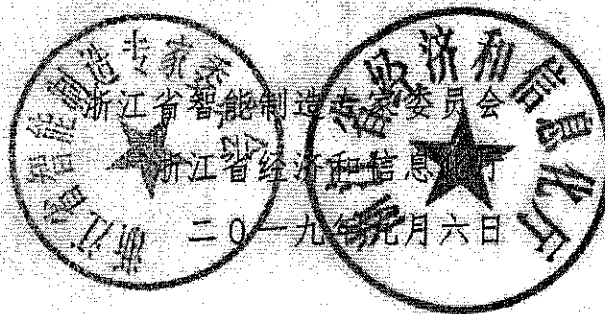 浙江省智能制造专家委员会
浙江省经济和信息化厅
二〇一九年九月六日
浙江省智能制造专家委员会
浙江省经济和信息化厅